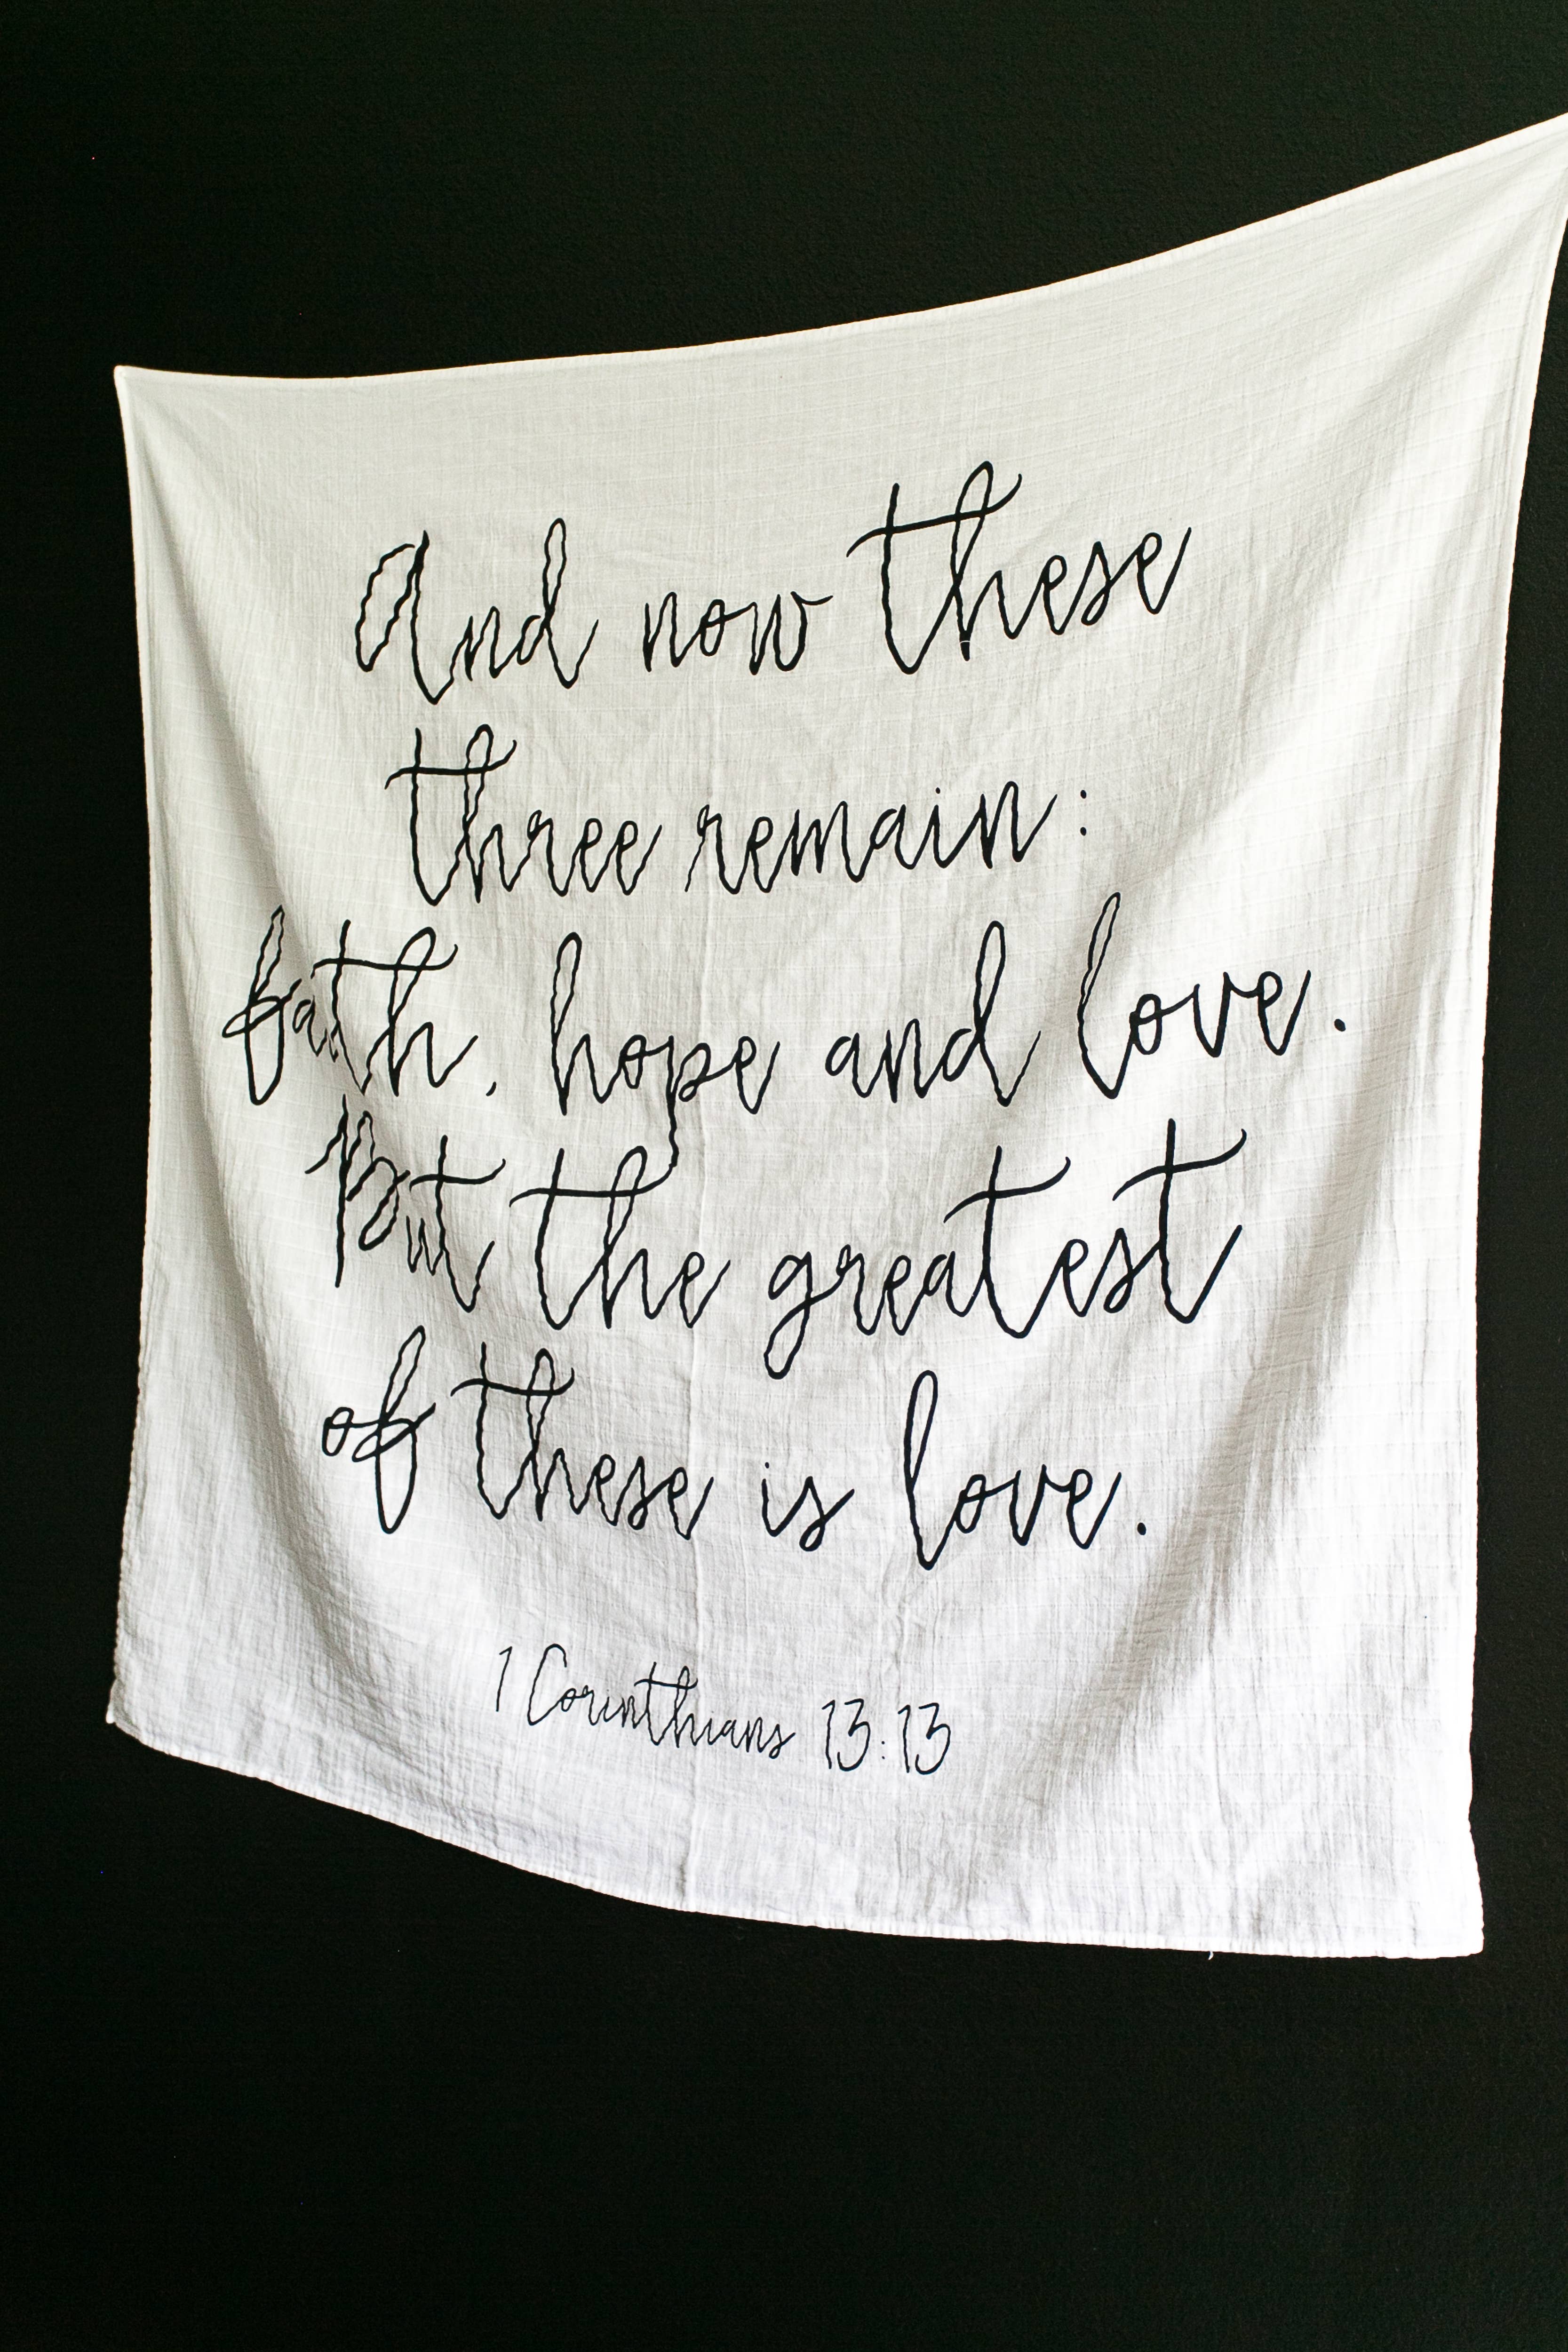 And now these
three remain:
faith, hope and love.
But the greatest
of these is love.
1 Corinthians 13:13